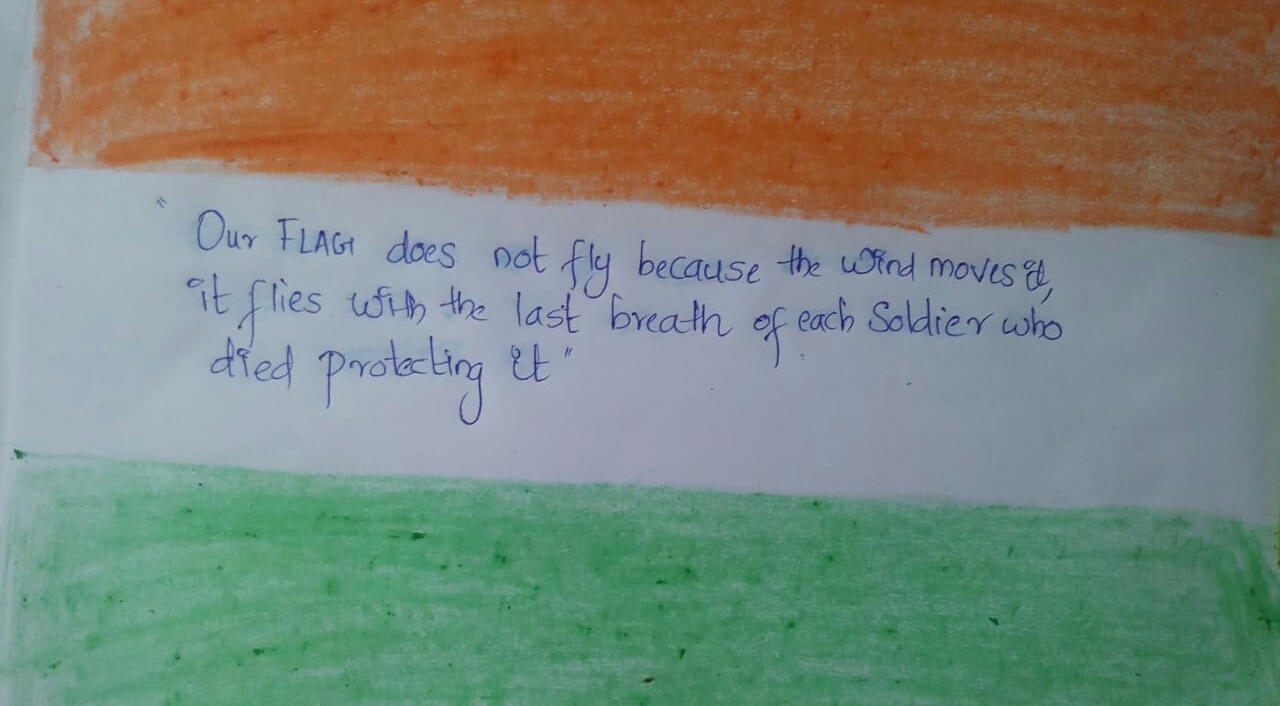 "Our FLAG does not fly because the wind moves it,
it flies with the last breath of each Soldier who
died protecting it"